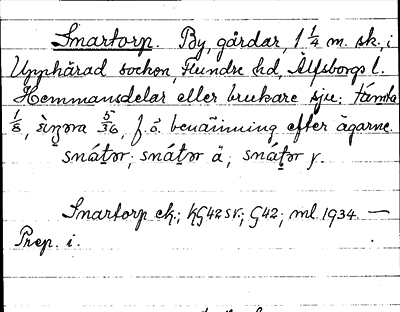 Snartorp. By, gårdar, 1 1/4 m. sk., i
Upphärad socken, Flundre hd, Älfsborgs l.
Hemmansdelar eller brukare sju:
1/8, 5/36, f. ö. benämning efter ägarne.
snátər; snátər ä; snátər
Snartorp ek.; KG42 SV; G42, ml. 1934. —
Prep. i.